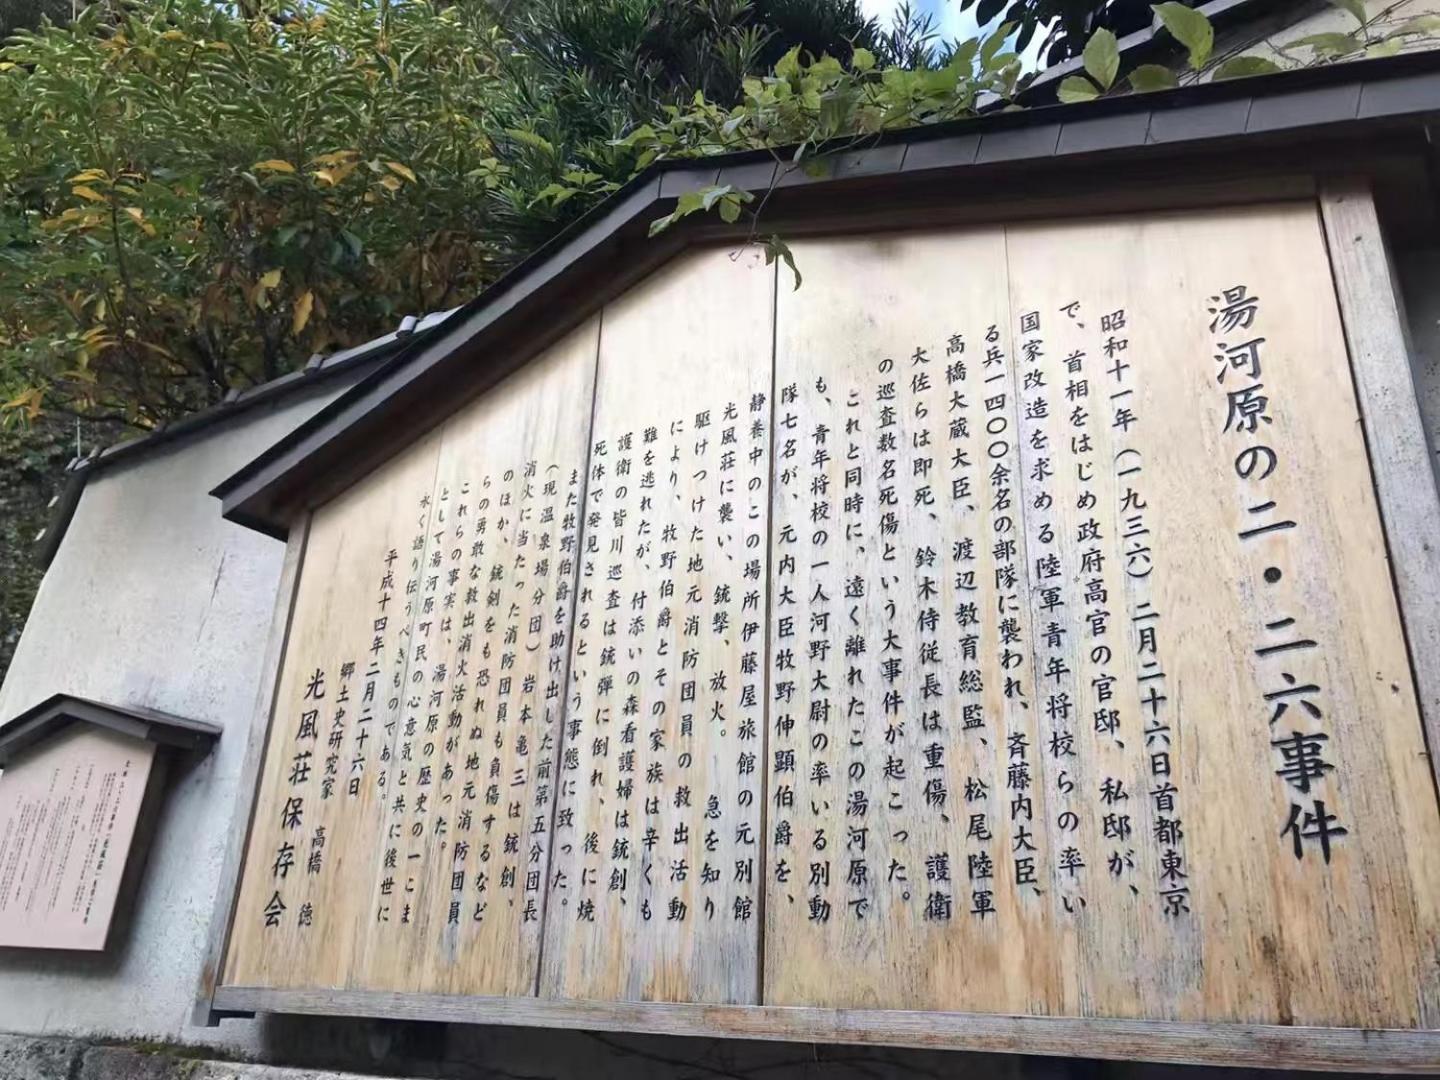 湯河原の二・二六事件
昭和十一年（一九三六）二月二十六日首都東京
で、首相をはじめ政府高官の官邸、私邸が、
国家改造を求める陸軍青年将校らの率い
る兵一四〇〇余名の部隊に襲われ、斉藤内大臣、
高橋大蔵大臣、渡辺教育総監、松尾陸軍
大佐らは即死、鈴木侍従長は重傷、護衛
の巡査数名死傷という大事件が起こった。
これと同時に、遠く離れたこの湯河原で
も、青年将校の一人河野大尉の率いる別動
隊七名が、元内大臣牧野伸顕伯爵を、
静養中のこの場所伊藤屋旅館の元別館
光風荘に襲い、銃撃、放火。急を知り
駆けつけた地元消防団員の救出活動
により、牧野伯爵とその家族は辛くも
難を逃れたが、付添いの森看護婦は銃創、
護衛の皆川巡査は銃弾に倒れ、後に焼
死体で発見されるという事態に致った。
また牧野伯爵を助け出した前第五分団長
（現温泉場分団）岩本亀三は銃創、
消火に当たった消防団員も負傷するなど
のほか、銃剣をも恐れぬ地元消防団員
らの勇敢な救出消火活動があった。
これらの事実は、湯河原の歴史の一こま
として湯河原町民の心意気と共に後世に
永く語り伝うべきものである。
平成十四年二月二十六日
郷土史研究家 高橋 徳
光風荘保存会